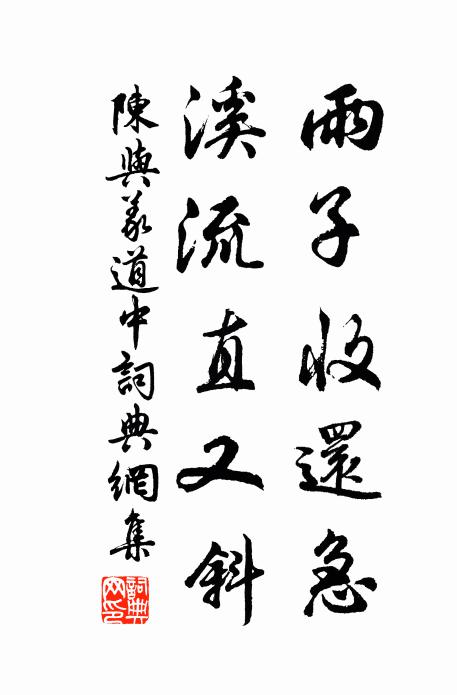 雨子收還急
溪流直又斜
陳與義道中詞典網集
詞典网印